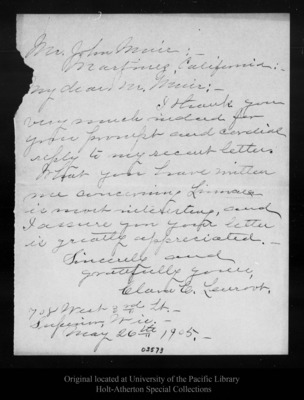 Mr. John Muir:-
Martinez, California:-
My dear Mr. Muir:-
I thank you
very much indeed for
your prompt and cordial
reply to my recent letter.
What you have written
me concerning
is most interesting, and
I assure you your letter
is greatly appreciated.-
Sincerely and
gratefully yours,
Clara C.
708 West 3rd St.-
Superior, Wis.-
May 26th 1905.-
03573
Original located at University of the Pacific Library
Holt-Atherton Special Collections